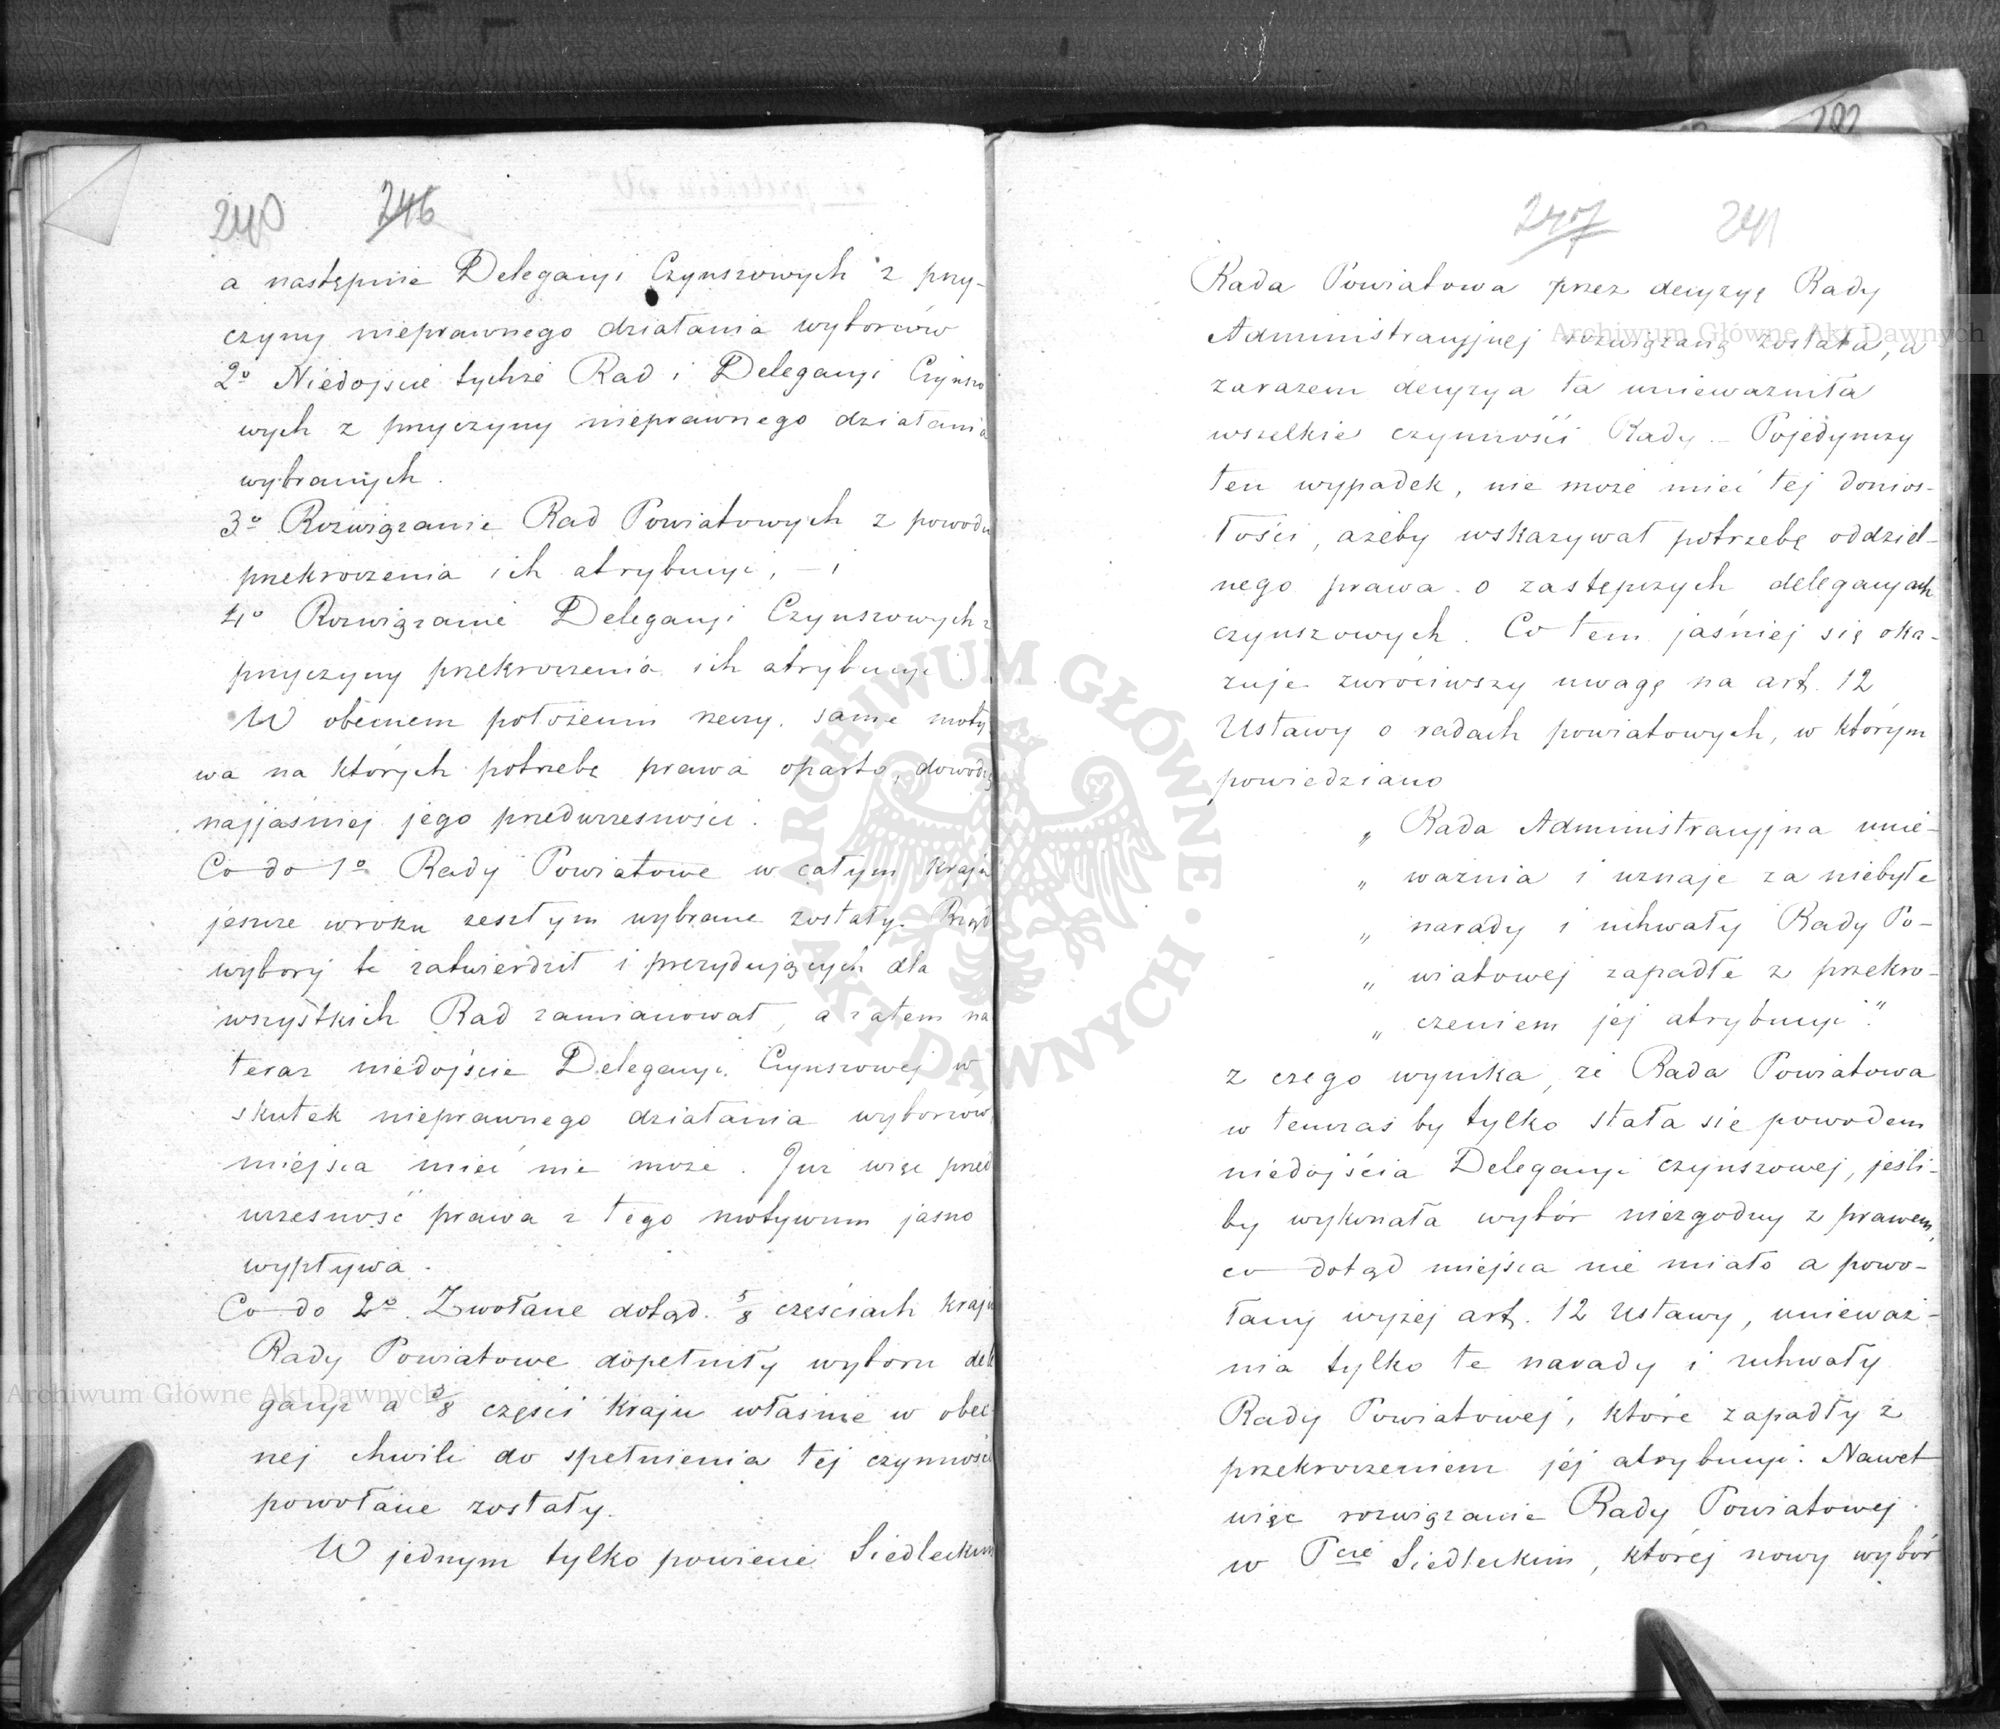 240 246
a następnie Delegacyi Czynszowych z przy-
czyny nieprawnego działania wyborców
2o Niedojście tychże Rad i Delegacyi Czynszo
wych z przyczyny nieprawnego działania
wybranych.
3o Rozwiązanie Rad Powiatowych z powodu
przekroczenia ich atrybucyi, – i
4o Rozwiązanie Delegacyi Czynszowych z
przyczyny przekroczenia ich atrybucyi.
W obecnem położeniu rzeczy. same moty
wa na których potrzebę prawa oparto, dowodzą
najjaśniej jego przedwczesności.
Co do 1o Rady Powiatowe w całym kraju
jeszcze w roku zeszłym wybrane zostały. Rząd
wybory te zatwierdził i prezydujących dla
wszystkich Rad zamianował, a zatem na
teraz niedojście Delegacyi Czynszowej w
skutek nieprawnego działania wyborców
miejsca mieć nie może. Już więc przed
wczesność prawa z tego motywum jasno
wypływa.
Co do 2o Zwołane dotąd. 5/8 częściach kraju
Rady Powiatowe dopełniły wyboru dele
gacyi a 3/8 części kraju właśnie w obec
nej chwili do spełnienia tej czynności
powołane zostały.
W jednym tylko powiecie Siedleckim
247 241
Rada Powiatowa przez decyzyę Rady
Administracyjnej rozwiązaną została, a
zarazem decyzya ta unieważniła
wszelkie czynności Rady – Pojedynczy
ten wypadek, nie może mieć tej donios-
łości, ażeby wskazywał potrzebę oddziel-
nego prawa o zastępczych delegacyach
czynszowych. Co tem jaśniej się oka-
zuje zwróciwszy uwagę na art. 12
Ustawy o radach powiatowych, w którym
powiedziano
„ Rada Administracyjna unie-
„ ważnia i uznaje za niebyłe
„ narady i uchwały Rady Po-
„ wiatowej zapadłe z przekro-
„ czeniem jéj atrybucyi."
z czego wynika, że Rada Powiatowa
w tenczas by tylko stała się powodem
niedojścia Delegacyi czynszowej, jeśli-
by wykonała wybór niezgodny z prawem,
co dotąd miejsca nie miało a powo-
łany wyżej art. 12 Ustawy, unieważ-
nia tylko te narady i uchwały
Rady Powiatowej, które zapadły z
przekroczeniem jéj atrybucyi. Nawet
więc rozwiązanie Rady Powiatowej
w Pcie Siedleckim, której nowy wybór
Archiwum Główne Akt Dawnych
Archiwum Główne Akt Dawnych
ARCHIWUM GŁÓWNE • AKT DAWNYCH •